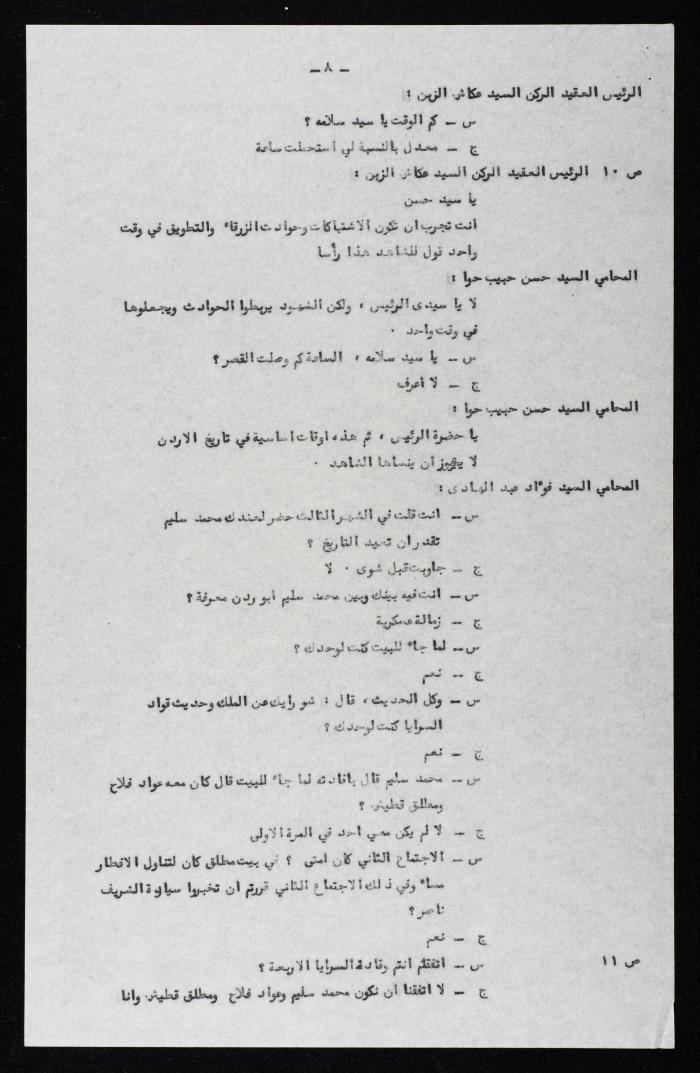 ـ ٨ ـ
الرئيس العقيد الركن السيد عكاش الزبن :
س ـ كم الوقت يا سيد سلامه ؟
ج ـ معدل بالنسبة لي استحطت ساعة
ص ١٠ الرئيس العقيد الركن السيد عكاش الزبن :
يا سيد حسن
انت تجرب ان تكون الاشتباكات وحوادث الزرقاء والتطويق في وقت
واحد قول للشاهد هذا رأسا
المحامي السيد حسن حبيب حوا :
لا يا سيدى الرئيس ، ولكن الشهود يربطوا الحوادث ويجعلوها
في وقت واحد .
س ـ يا سيد سلامه ، الساعة كم وصلت القصر ؟
ج ـ لا اعرف
المحامي السيد حسن حبيب حوا :
يا حضرة الرئيس ، ثم هذه اوقات اساسية في تاريخ الاردن
لا يجوز ان ينساها الشاهد .
المحامي السيد فؤاد عبد الهادى :
س ـ انت قلت في الشهر الثالث حضر لعندك محمد سليم
تقدر ان تعيد التاريخ ؟
ج ـ جاوبت قبل شوى . لا
س ـ انت فيه بينك وبين محمد سليم ابو ردن معرفة ؟
ج ـ زمالة عسكرية
س ـ لما جاء للبيت كنت لوحدك ؟
ج ـ نعم
س ـ وكل الحديث ، قال : شو رايك عن الملك وحديث قواد
السرايا كنت لوحدك ؟
ج ـ نعم
س ـ محمد سليم قال بافادته لما جاء للبيت قال كان معه عواد فلاح
ومطلق قطيش ؟
ج ـ لا لم يكن معي احد في المرة الاولى
س ـ الاجتماع الثاني كان امتى ؟ في بيت مطلق كان لتناول الافطار
مساء وفي ذلك الاجتماع الثاني قررتم ان تخبروا سيادة الشريف
ناصر ؟
ج ـ نعم
ص ١١ س ـ اتفقتم انتم وقادة السرايا الاربعة ؟
ج ـ لا اتفقنا ان نكون محمد سليم وعواد فلاح ومطلق قطيش وانا